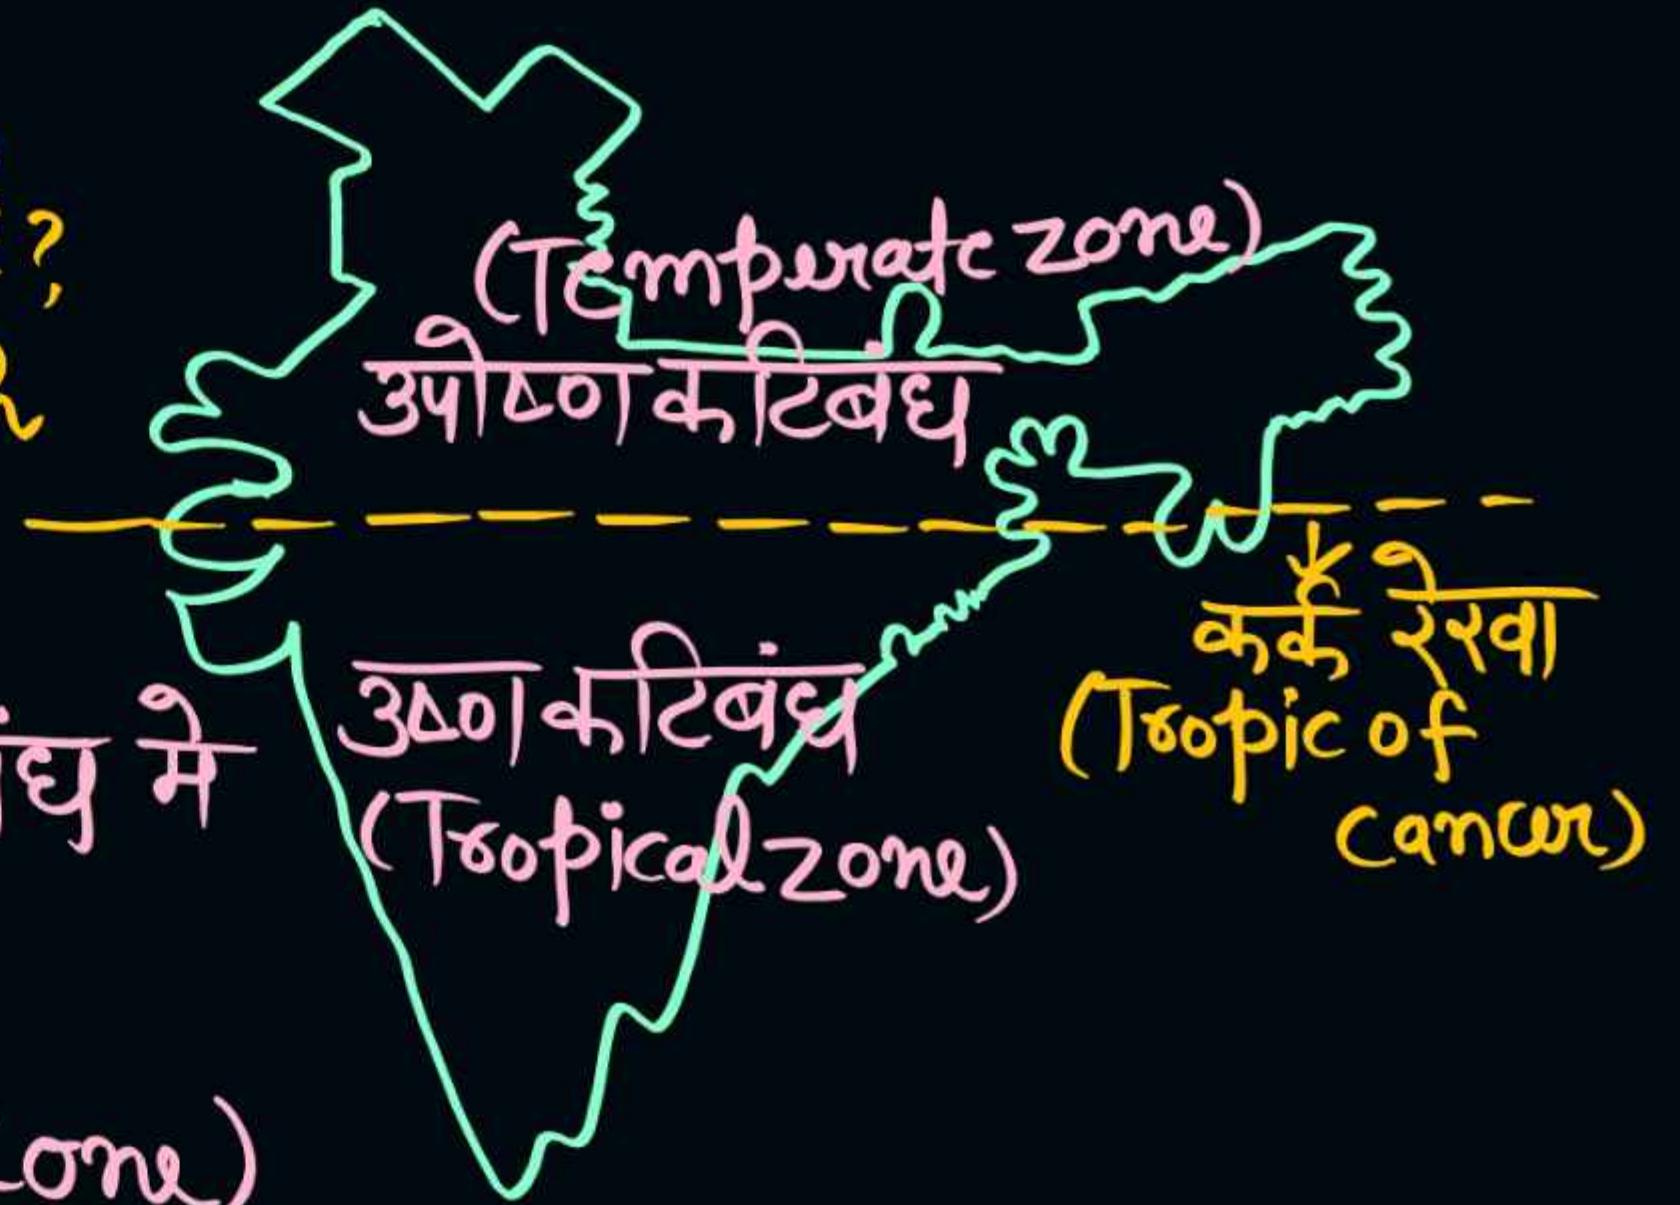 ?
(Temperate zone)
उपोष्ण कटिबंध
कर्क रेखा
(Tropic of
cancer)
उष्ण कटिबंध
(Tropical zone)
मे